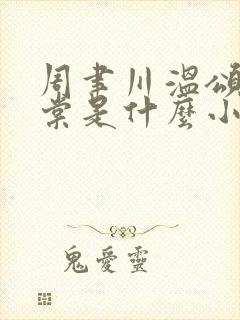 周聿川溫頌
棠是什麼小
鬼愛靈